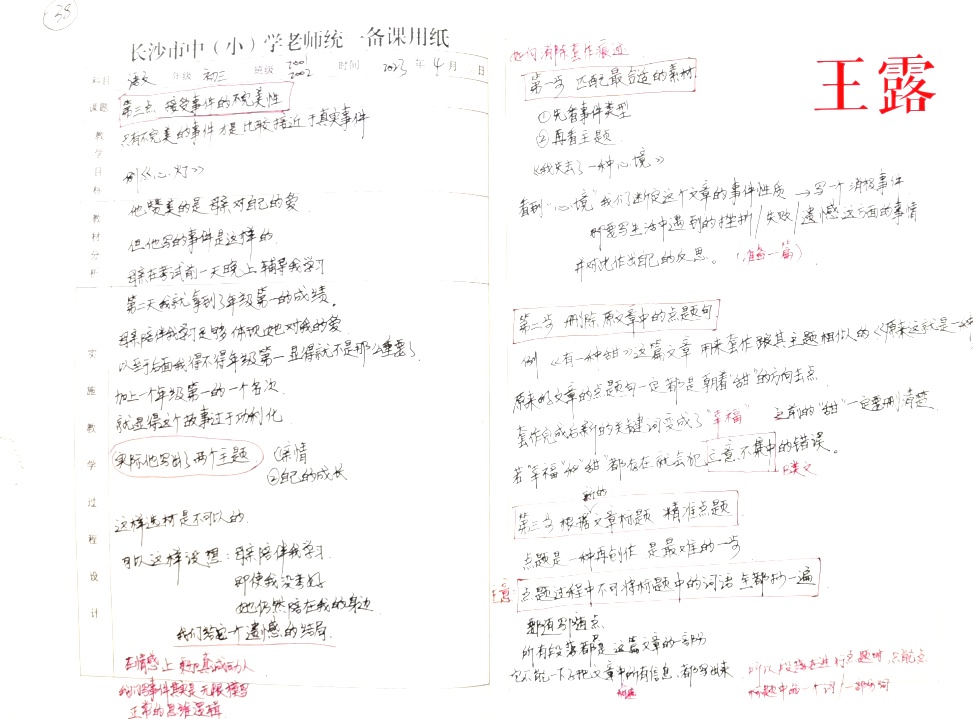 38
长沙市中（小）学老师统一备课用纸
科目 语文 年级 初三 班级 2001 2002 时间 2023 年 4 月 日
课题
教学目标
教材分析
实施教学过程设计
第三点 接受事件的不完美性
只有不完美的事件才是比较接近于真实事件
例《心灯》
他赞美的是母亲对自己的爱
但他写的事件是这样的
母亲在考试前一天晚上辅导我学习
第二天我就拿到了年级第一的成绩。
母亲陪伴我学习足够体现她对我的爱
以至于后面我得不得年级第一显得就不是那么重要了
加上一个年级第一的一个名次
就显得这个故事过于功利化
实际他写出了两个主题
①亲情
②自己的成长
这样选材是不可以的
可以这样设想：母亲陪伴我学习
即使我没考好
她仍然陪在我的身边
我们给它一个遗憾的结局
在情感上 真诚动人
我们的事件其实是无限接近
正常的思维逻辑
如何消除套作痕迹
第一步 匹配最合适的素材
①先看事件类型
②再看主题
《我失去了一种心境》
看到“心境”我们断定这个文章的事件性质→写一个消极事件
所要写生活中遇到的挫折/失败/遗憾这方面的事情
并对此作出自己的反思。（准备一篇）
第二步 删除原文章中的点题句
例《有一种甜》这篇文章 用来套作跟其主题相似的《原来这就是一种
原来的文章的点题句一定都是朝着“甜”的方向去点
套作完成后新的关键词变成了“幸福” 之前的“甜”一定要删清楚
若“幸福”和“甜”都存在就会犯 立意不集中的错误。
F类文
新的
第三步 根据文章标题 精准点题
点题是一种再创作 是最难的一步
点题过程中不可将标题中的词语全都抄一遍
要有引领点
所有段落都是这篇文章的一部分
它不能一下子把文章中所有信息 都写出来
标题
所以段落在进行点题时，只能点
标题中的一个词/一部分词
王露